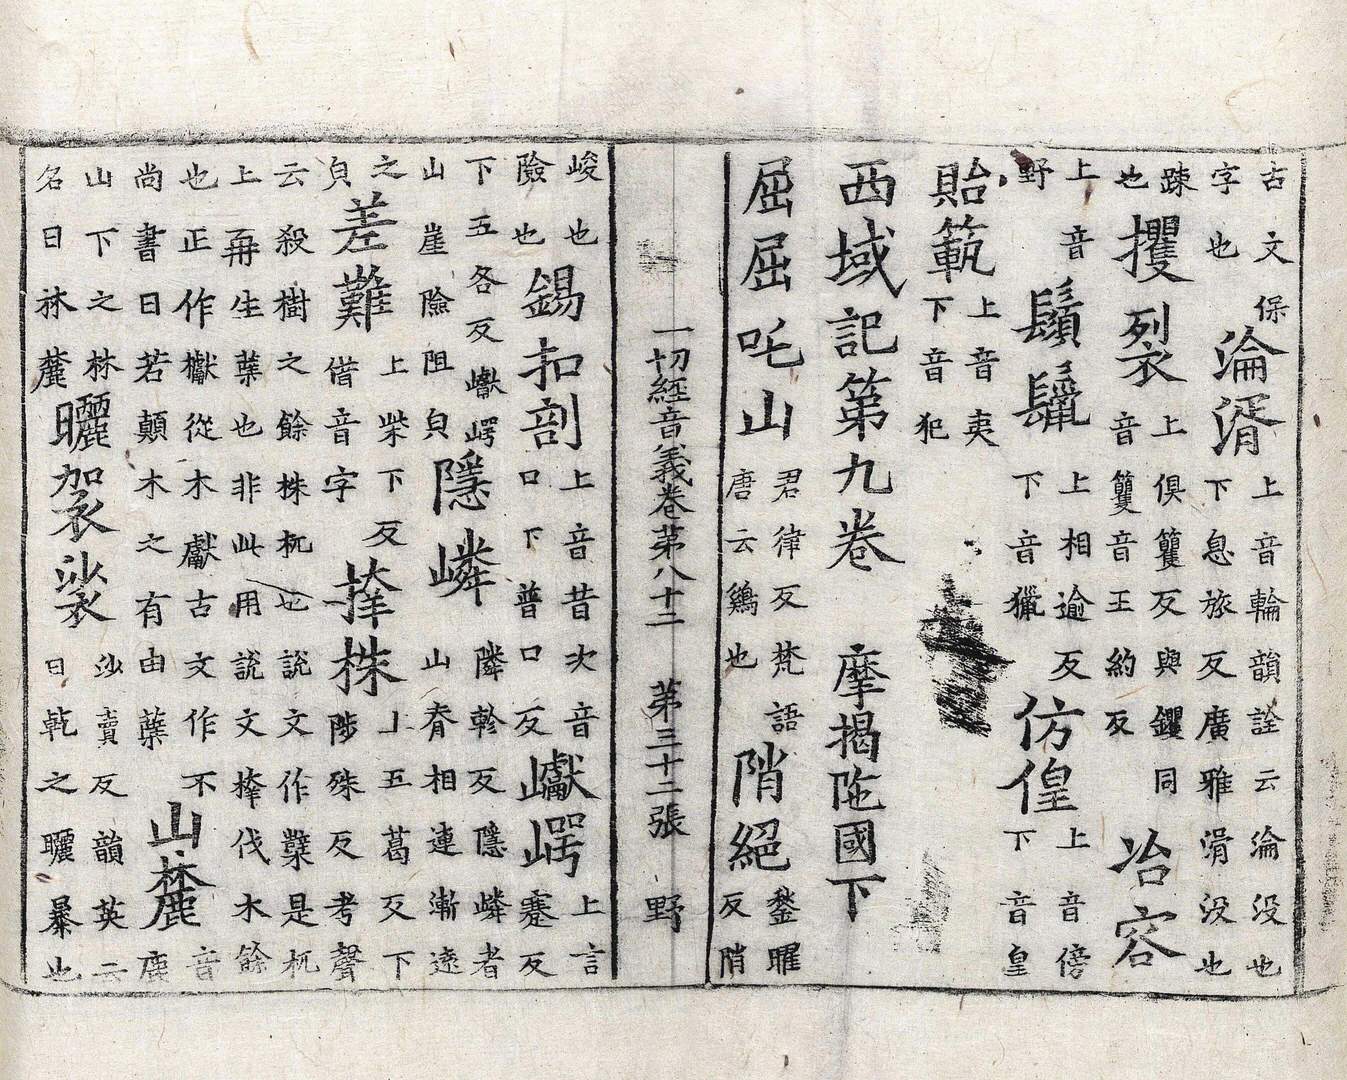 古文保字也淪湑上音輪韻詮云淪没也下息旅反廣雅湑没也
踈也攫裂上俱籰反與钁同音籰音王約反冶容
上音野鬚鬣上相逾反下音獵仿偟上音傍下音皇
貽範上音夷下音犯
西域記第九卷 摩揭陁國下
屈屈吒山君律反梵語唐云鷄也陗絕鍫曜反陗
一切經音義卷第八十二 第三十二張 野
峻也險也錫扣剖上音昔次音口下普口反巘崿上言蹇反
下五各反巘崿山崖險阻皃隱嶙隣軫反隱嶙者山脊相連漸遠
之皃差難上柴下反借音字搼株上五葛反下陟殊反考聲
云殺樹之餘株杌也說文作櫱是杌上再生蘖也非此用說文㭬伐木餘
也正作巘從木獻古文作不尚書曰若顛木之有由蘖山麓音鹿
山下之林名曰林麓曬袈裟沙賣反韻英云曰乹之曬暴也